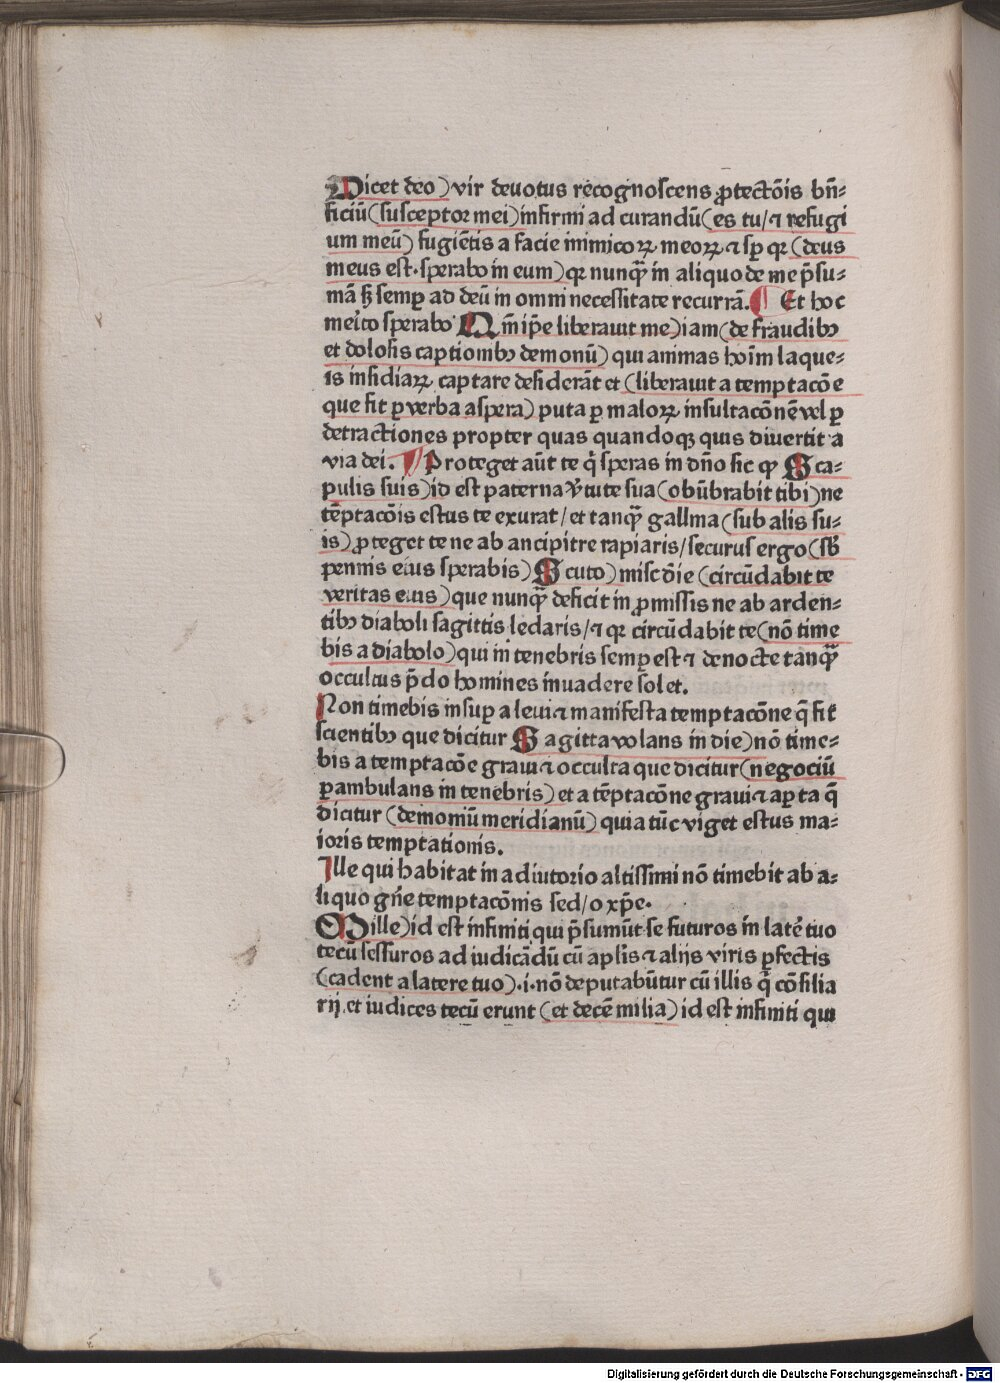 Dicet deo) vir deuotus recognoscens ꝓtectõis bñ⸗
ficiũ (susceptor mei) infirmi ad curandũ (es tu / ⁊ refugi
um meũ) fugiẽtis a facie inimicoꝝ meoꝝ ⁊ sꝑ qꝛ (deus
meus est · sperabo in eum) qꝛ nunq̃ in aliquo de me p̃su⸗
mã ß semꝑ ad deũ in omni necessitate recurrã. ¶ Et hoc
meĩto sperabo Qm̃ ip̃e liberauit me) iam (de fraudibꝫ
et dolosis captionibꝫ demonũ) qui animas hoĩm laque⸗
is insidiaꝝ captare desiderãt et (liberauit a temptacõe
que fit ꝑ verba aspera) puta ꝑ maloꝝ insultacõnẽ vel ꝑ
detractiones propter quas quandoqꝫ quis diuertit a
via dei. ¶ Proteget aũt te q̃ speras in dño sic ꝙ Sca⸗
pulis suis) id est paterna v̾tute sua (obũbrabit tibi) ne
tẽptacõis estus te exurat / et tanq̃ gallina (sub alis su⸗
is) ꝓteget te ne ab ancipitre rapiaris / securus ergo (sb̾
pennis eius sperabis) Scuto) misc̾die (circũdabit te
veritas eius) que nunq̃ deficit in ꝓmissis ne ab arden⸗
tibꝫ diaboli sagittis ledaris / ⁊ qꝛ circũdabit te (nõ time
bis a diabolo) qui in tenebris semꝑ est ⁊ de nocte tanq̃
occultus p̃do homines inuadere solet.
Non timebis insuꝑ a leui ⁊ manifesta temptacõne q̃ fit
scientibꝫ que dicitur Sagitta volans in die) nõ time⸗
bis a temptacõe graui ⁊ occulta que dicitur (negociũ
ꝑambulans in tenebris) et a tẽptacõne graui ⁊ aꝑta q̃
dicitur (demoniũ meridianũ) quia tũc viget estus ma⸗
ioris temptationis.
Ille qui habitat in adiutorio altissimi nõ timebit ab a⸗
liquo gñe temptacõnis sed / o xp̃e.
Mille) id est infiniti qui p̃sumũt se futuros in late̾ tuo
tecũ sessuros ad iudicãdũ cũ aplis ⁊ alijs viris ꝑfectis
(cadent a latere tuo) .i. nõ deputabũtur cũ illis q̃ cõsilia
rij et iudices tecũ erunt (et decẽ milia) id est infiniti qui
Digitalisierung gefördert durch die Deutsche Forschungsgemeinschaft - DFG